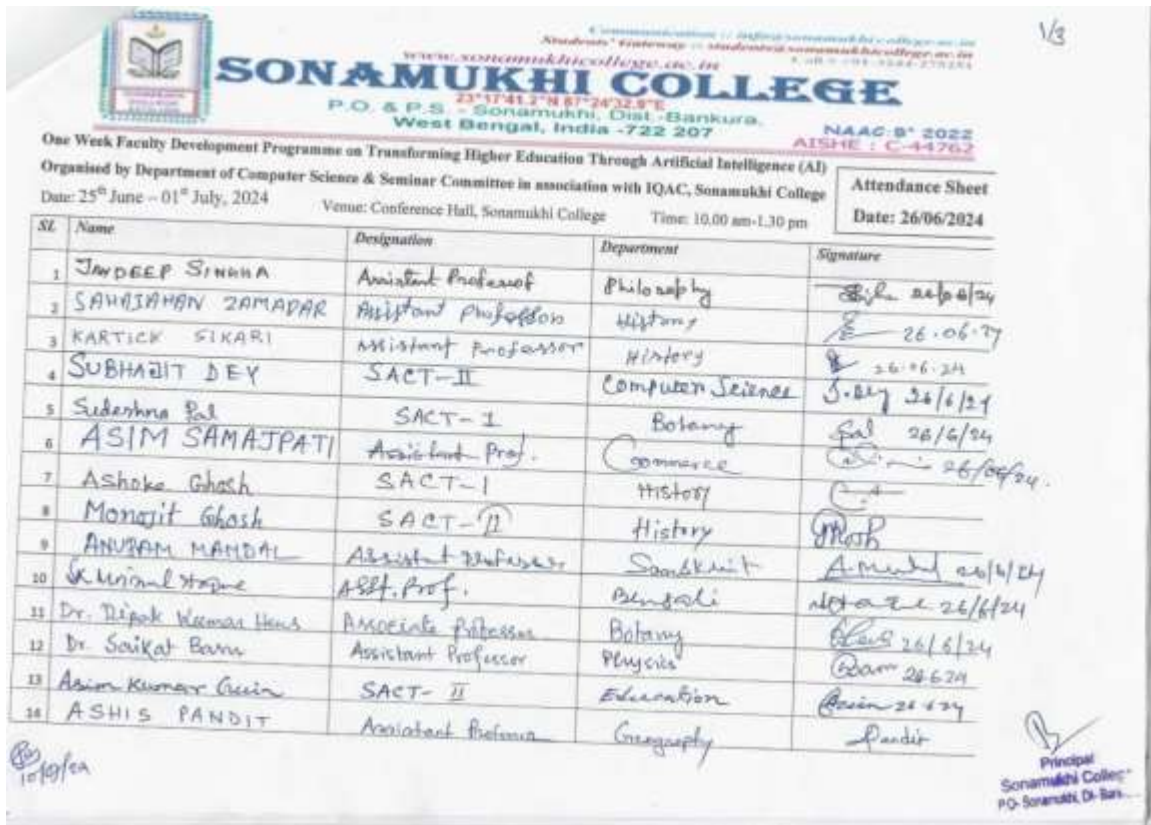 1/3
Communication :: info@sonamukhicollege.ac.in
Students' Gateway :: students@sonamukhicollege.ac.in
www.sonamukhicollege.ac.in
SONAMUKHI COLLEGE
23°17'41.2"N 87°24'32.9"E
P.O. & P.S. - Sonamukhi, Dist.-Bankura,
West Bengal, India -722 207
NAAC B+ 2022
AISHE : C-44762
One Week Faculty Development Programme on Transforming Higher Education Through Artificial Intelligence (AI)
Organised by Department of Computer Science & Seminar Committee in association with IQAC, Sonamukhi College
Attendance Sheet
Date: 25th June – 01st July, 2024 Venue: Conference Hall, Sonamukhi College Time: 10.00 am-1.30 pm
Date: 26/06/2024
SL Name Designation Department Signature
1 JAYDEEP SINGHA Assistant Professor Philosophy 26/06/24
2 SAHAJAHAN ZAMADAR Assistant Professor History 26.06.24
3 KARTICK SIKARI Assistant Professor History 26.06.24
4 SUBHAJIT DEY SACT-II Computer Science S.Dey 26/6/24
5 Sudeshna Pal SACT-I Botany Pal 26/6/24
6 ASIM SAMAJPATI Assistant Prof. Commerce 26/06/24.
7 Ashoke Ghosh SACT-I History
8 Monojit Ghosh SACT-II History Ghosh
9 ANUPAM MANDAL Assistant Professor Sanskrit A.Mandal 26/6/24
10 Asst. Prof. Bengali 26/6/24
11 Dr. Dipak Kumar Hens Associate Professor Botany Hens 26/6/24
12 Dr. Saikat Baru Assistant Professor Physics 26.6.24
13 Asim Kumar Guin SACT-II Education Guin 26.6.24
14 ASHIS PANDIT Assistant Professor Geography Pandit
Principal
Sonamukhi College